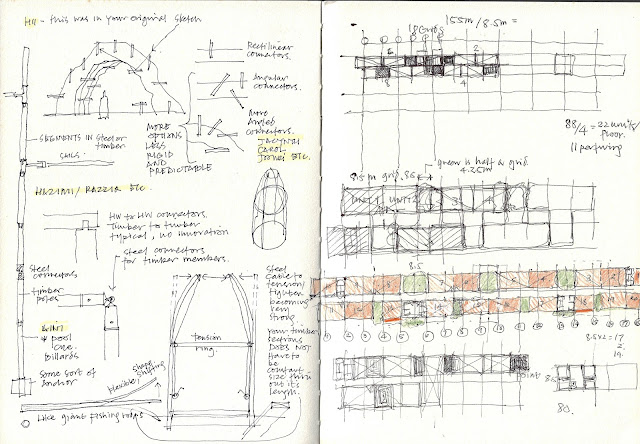 HW - this was in your original sketch
Rectilinear
connectors.
Angular
connectors.
More
Angled
connectors.
CAROL
ETC.
SEGMENTS IN Steel or
timber
MORE
OPTIONS
LESS
RIGID
AND
PREDICTABLE
HAZIMI / RAZZIA ETC
HW to HW connectors.
Timber to timber
typical, no innovation
steel connectors
for timber members.
steel
connectors
timber
poles
AINI
pool
cue
billards
Some sort of
Anchor
flexible
shape
shifting
Like giant fishing rods
tension
ring.
Steel
cable to
tension/
tighten
becoming
very
strong
your timber
sections
DOES NOT
Have to
be
constant
size thru
out its
length.
155m / 8.5m =
18 Grids
6
2
8
4
88/4 = 22 units/
floor.
11 per wing
green is half a grid
4.25m
8.5m grid.
UNIT 1
UNIT 2
8.5
8.5 x 2 = 17
2
19.
80.